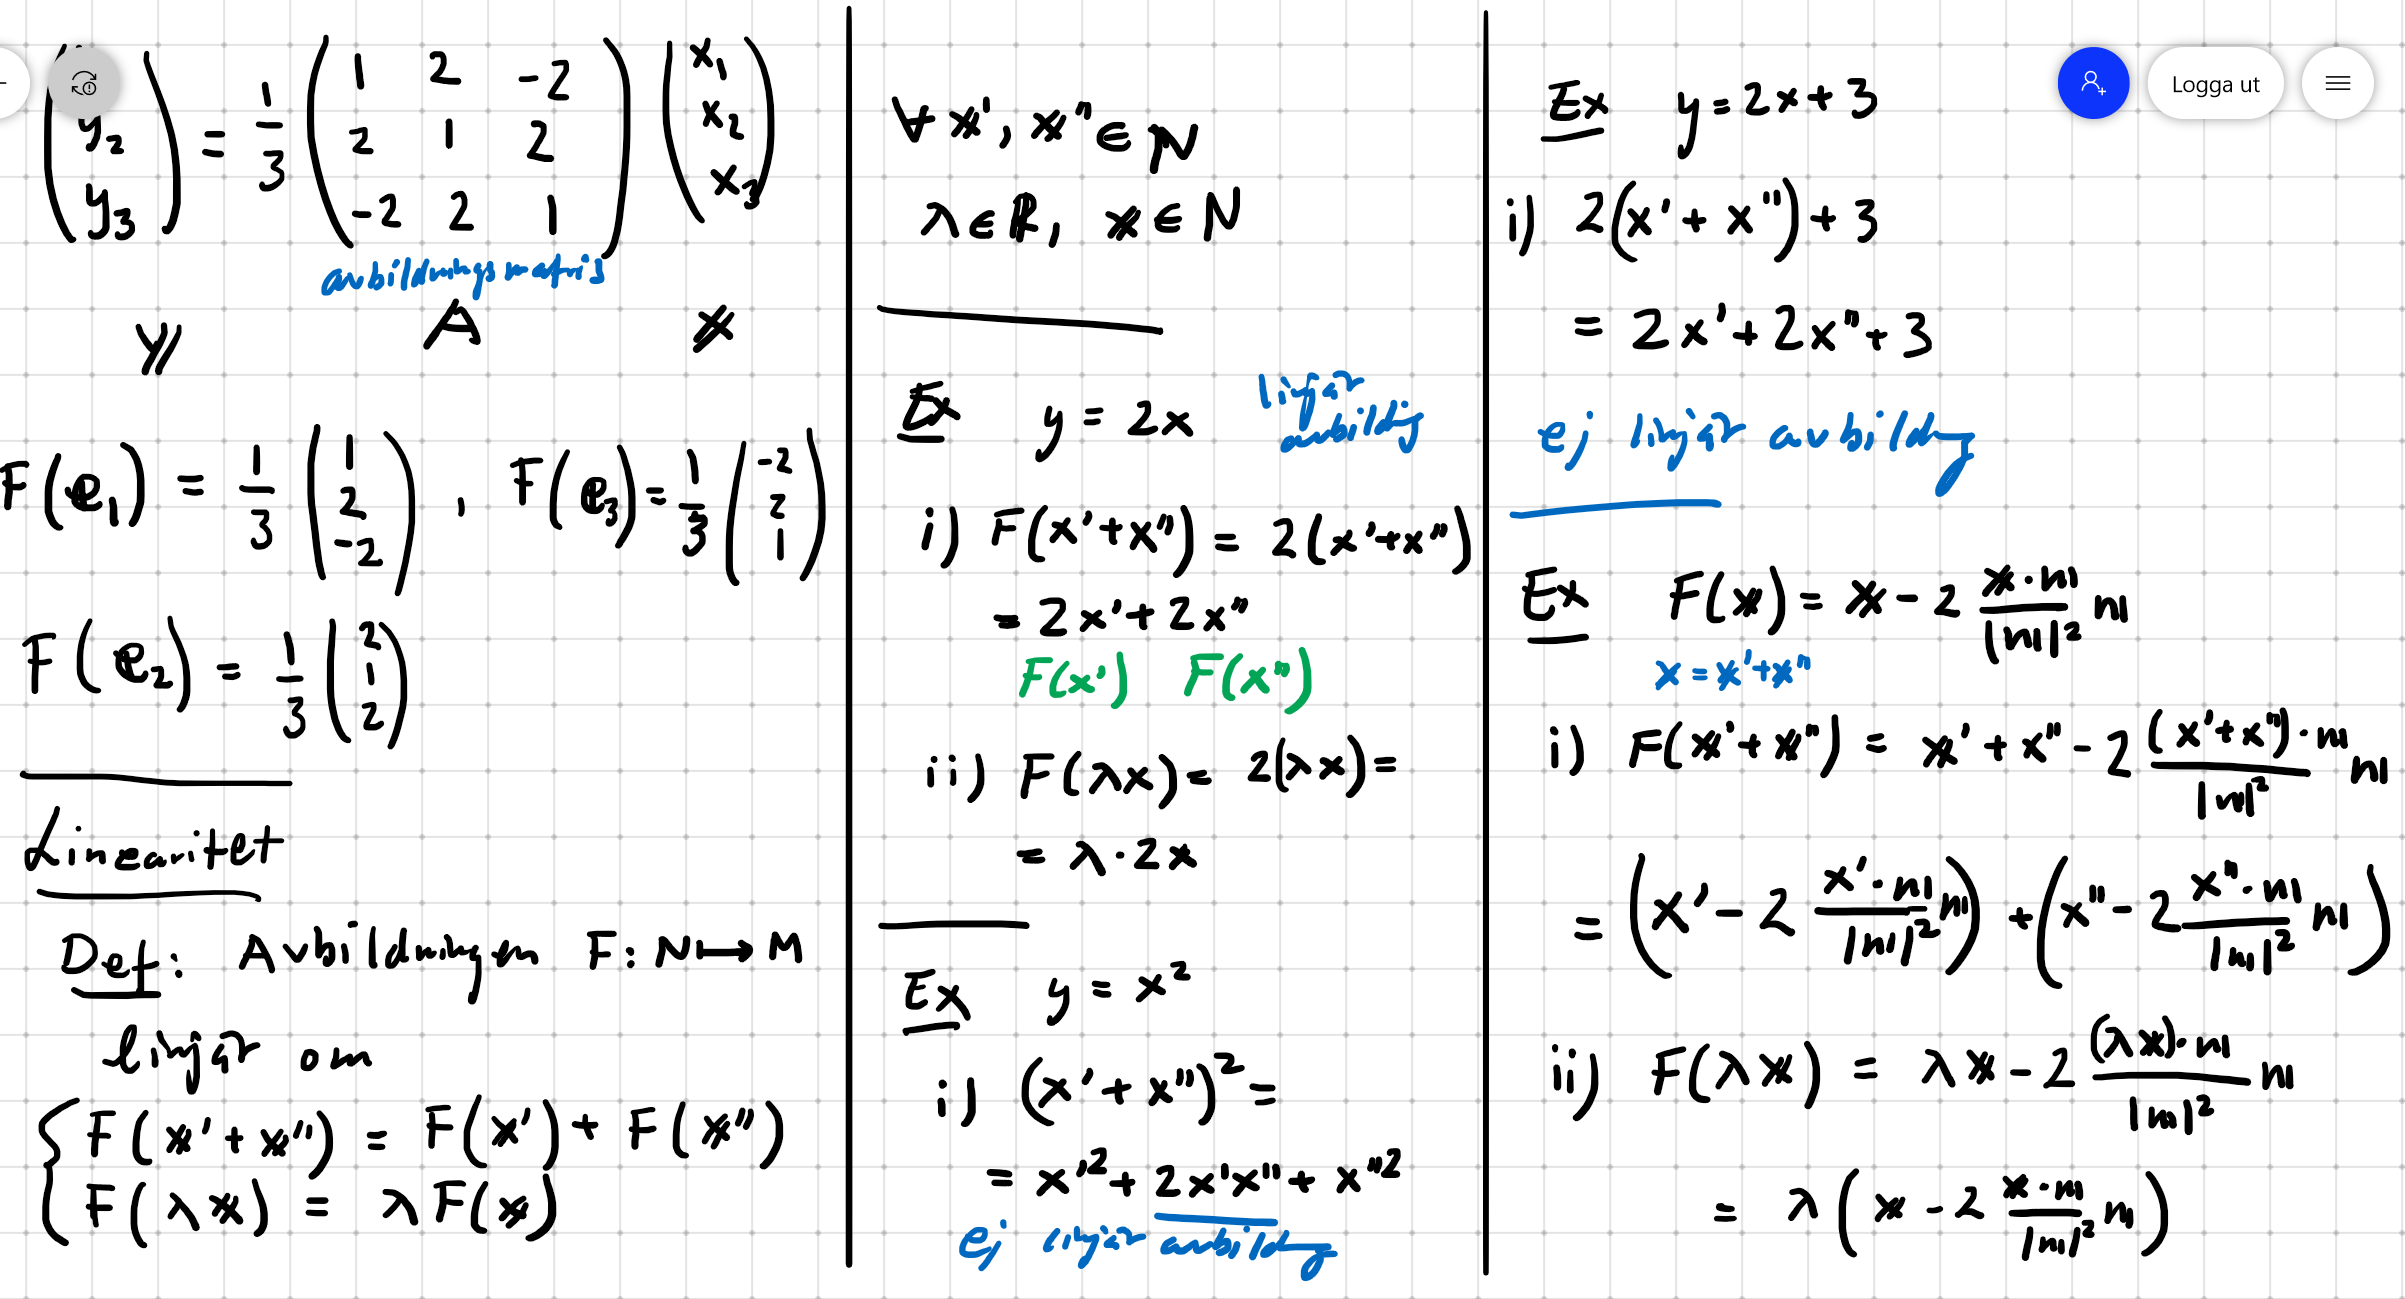 y₂
y₃
= 1/3
1 2 -2
2 1 2
-2 2 1
x₁
x₂
x₃
avbildningsmatris
y A x
F(e₁) = 1/3 (1 2 -2), F(e₃) = 1/3 (-2 2 1)
F(e₂) = 1/3 (2 1 2)
Linearitet
Def: Avbildningen F: N ↦ M
linjär om
F(x' + x'') = F(x') + F(x'')
F(λx) = λF(x)
∀ x', x'' ∈ N
λ ∈ R, x ∈ N
Ex y = 2x linjär
avbildng
i) F(x'+x'') = 2(x'+x'')
= 2x' + 2x''
F(x') F(x'')
ii) F(λx) = 2(λx) =
= λ · 2x
Ex y = x²
i) (x' + x'')² =
= x'² + 2x'x'' + x''²
ej linjär avbildng
Ex y = 2x + 3
i) 2(x' + x'') + 3
= 2x' + 2x'' + 3
ej linjär avbildng
Ex F(x) = x - 2 (x·n)/|n|² n
x = x' + x''
i) F(x' + x'') = x' + x'' - 2 ((x'+x'')·n)/|n|² n
= (x' - 2 (x'·n)/|n|² n) + (x'' - 2 (x''·n)/|n|² n)
ii) F(λx) = λx - 2 ((λx)·n)/|n|² n
= λ(x - 2 (x·n)/|n|² n)
Logga ut